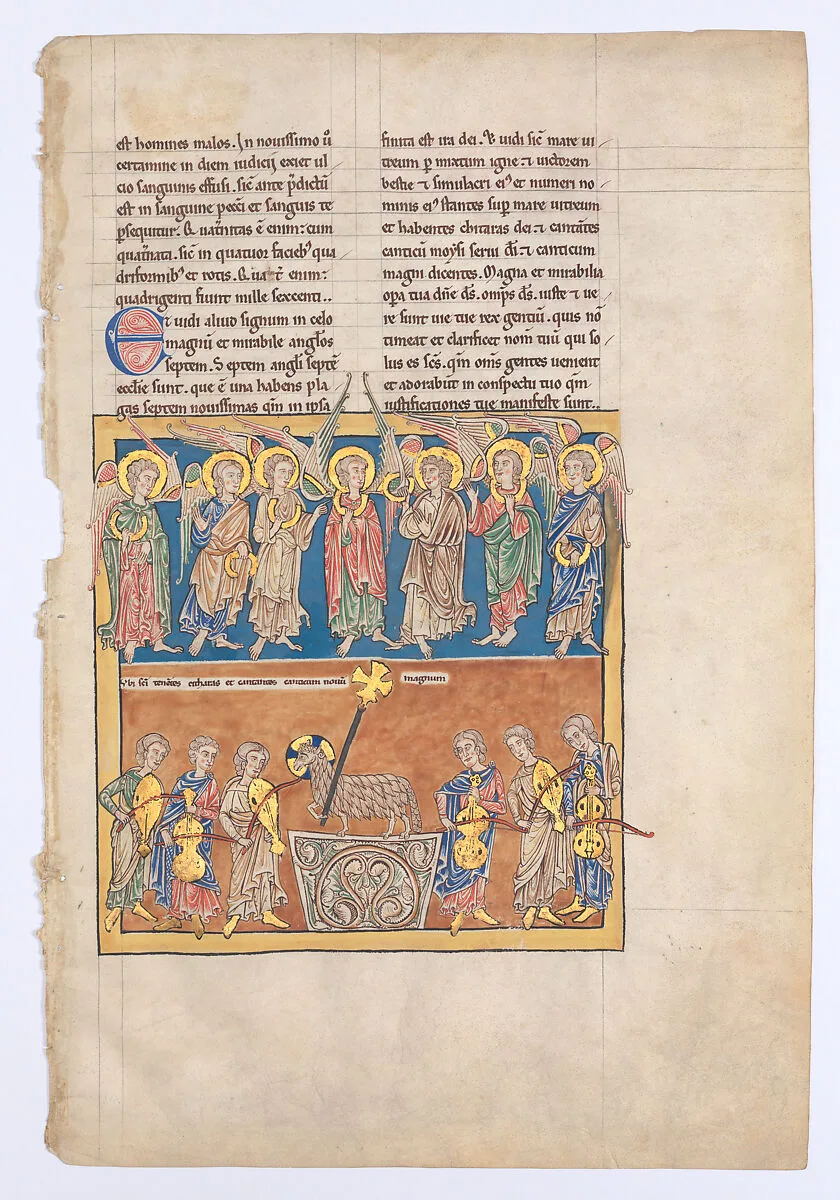 est homines malos. In nouissimo u̅o
certamine in diem iudicij exiet ul
cio sanguinis effusi. sic̅ ante p̅dictu̅
est in sanguine pecc̅i et sanguis te
p̱sequitur. Quat̅nitas e̅ enim: cum
quat̅nata. sic̅ in quatuor facieb⁹ qua
driformib⁹ et rotis. Qua e̅ enim:
quadrigenti fiunt mille sexcenti..
Et uidi aliud signum in celo
magnu̅ et mirabile angl̅os
septem. Septem angl̅i septe̅
eccl̅ie sunt. que e̅ una habens pla
gas septem nouissimas qm̅ in ipsa
finita est ira dei. & uidi sic̅ mare ui
treum p̱ mixtum igne ⁊ uictorem
bestie ⁊ simulacri ei⁹ et numeri no
minis ei⁹ stantes sup̱ mare uitreum
et habentes chitaras dei ⁊ canta̅tes
canticu̅ moysi serui di̅ ⁊ canticum
magni dicentes. Magna et mirabilia
op̱a tua dn̅e ds̅. omp̅s ds̅. iuste ⁊ ue
re sunt uie tue rex gentiu̅. quis no̅
timeat et clarificet nom̅ tuu̅ qui so
lus es sc̅s. qm̅ om̅s gentes uenient
et adorabu̅t in conspectu tuo qm̅
iustificationes tue manifeste sunt..
Vbi sc̅i tene̅tes citharas et cantantes canticum nouu̅ magnum